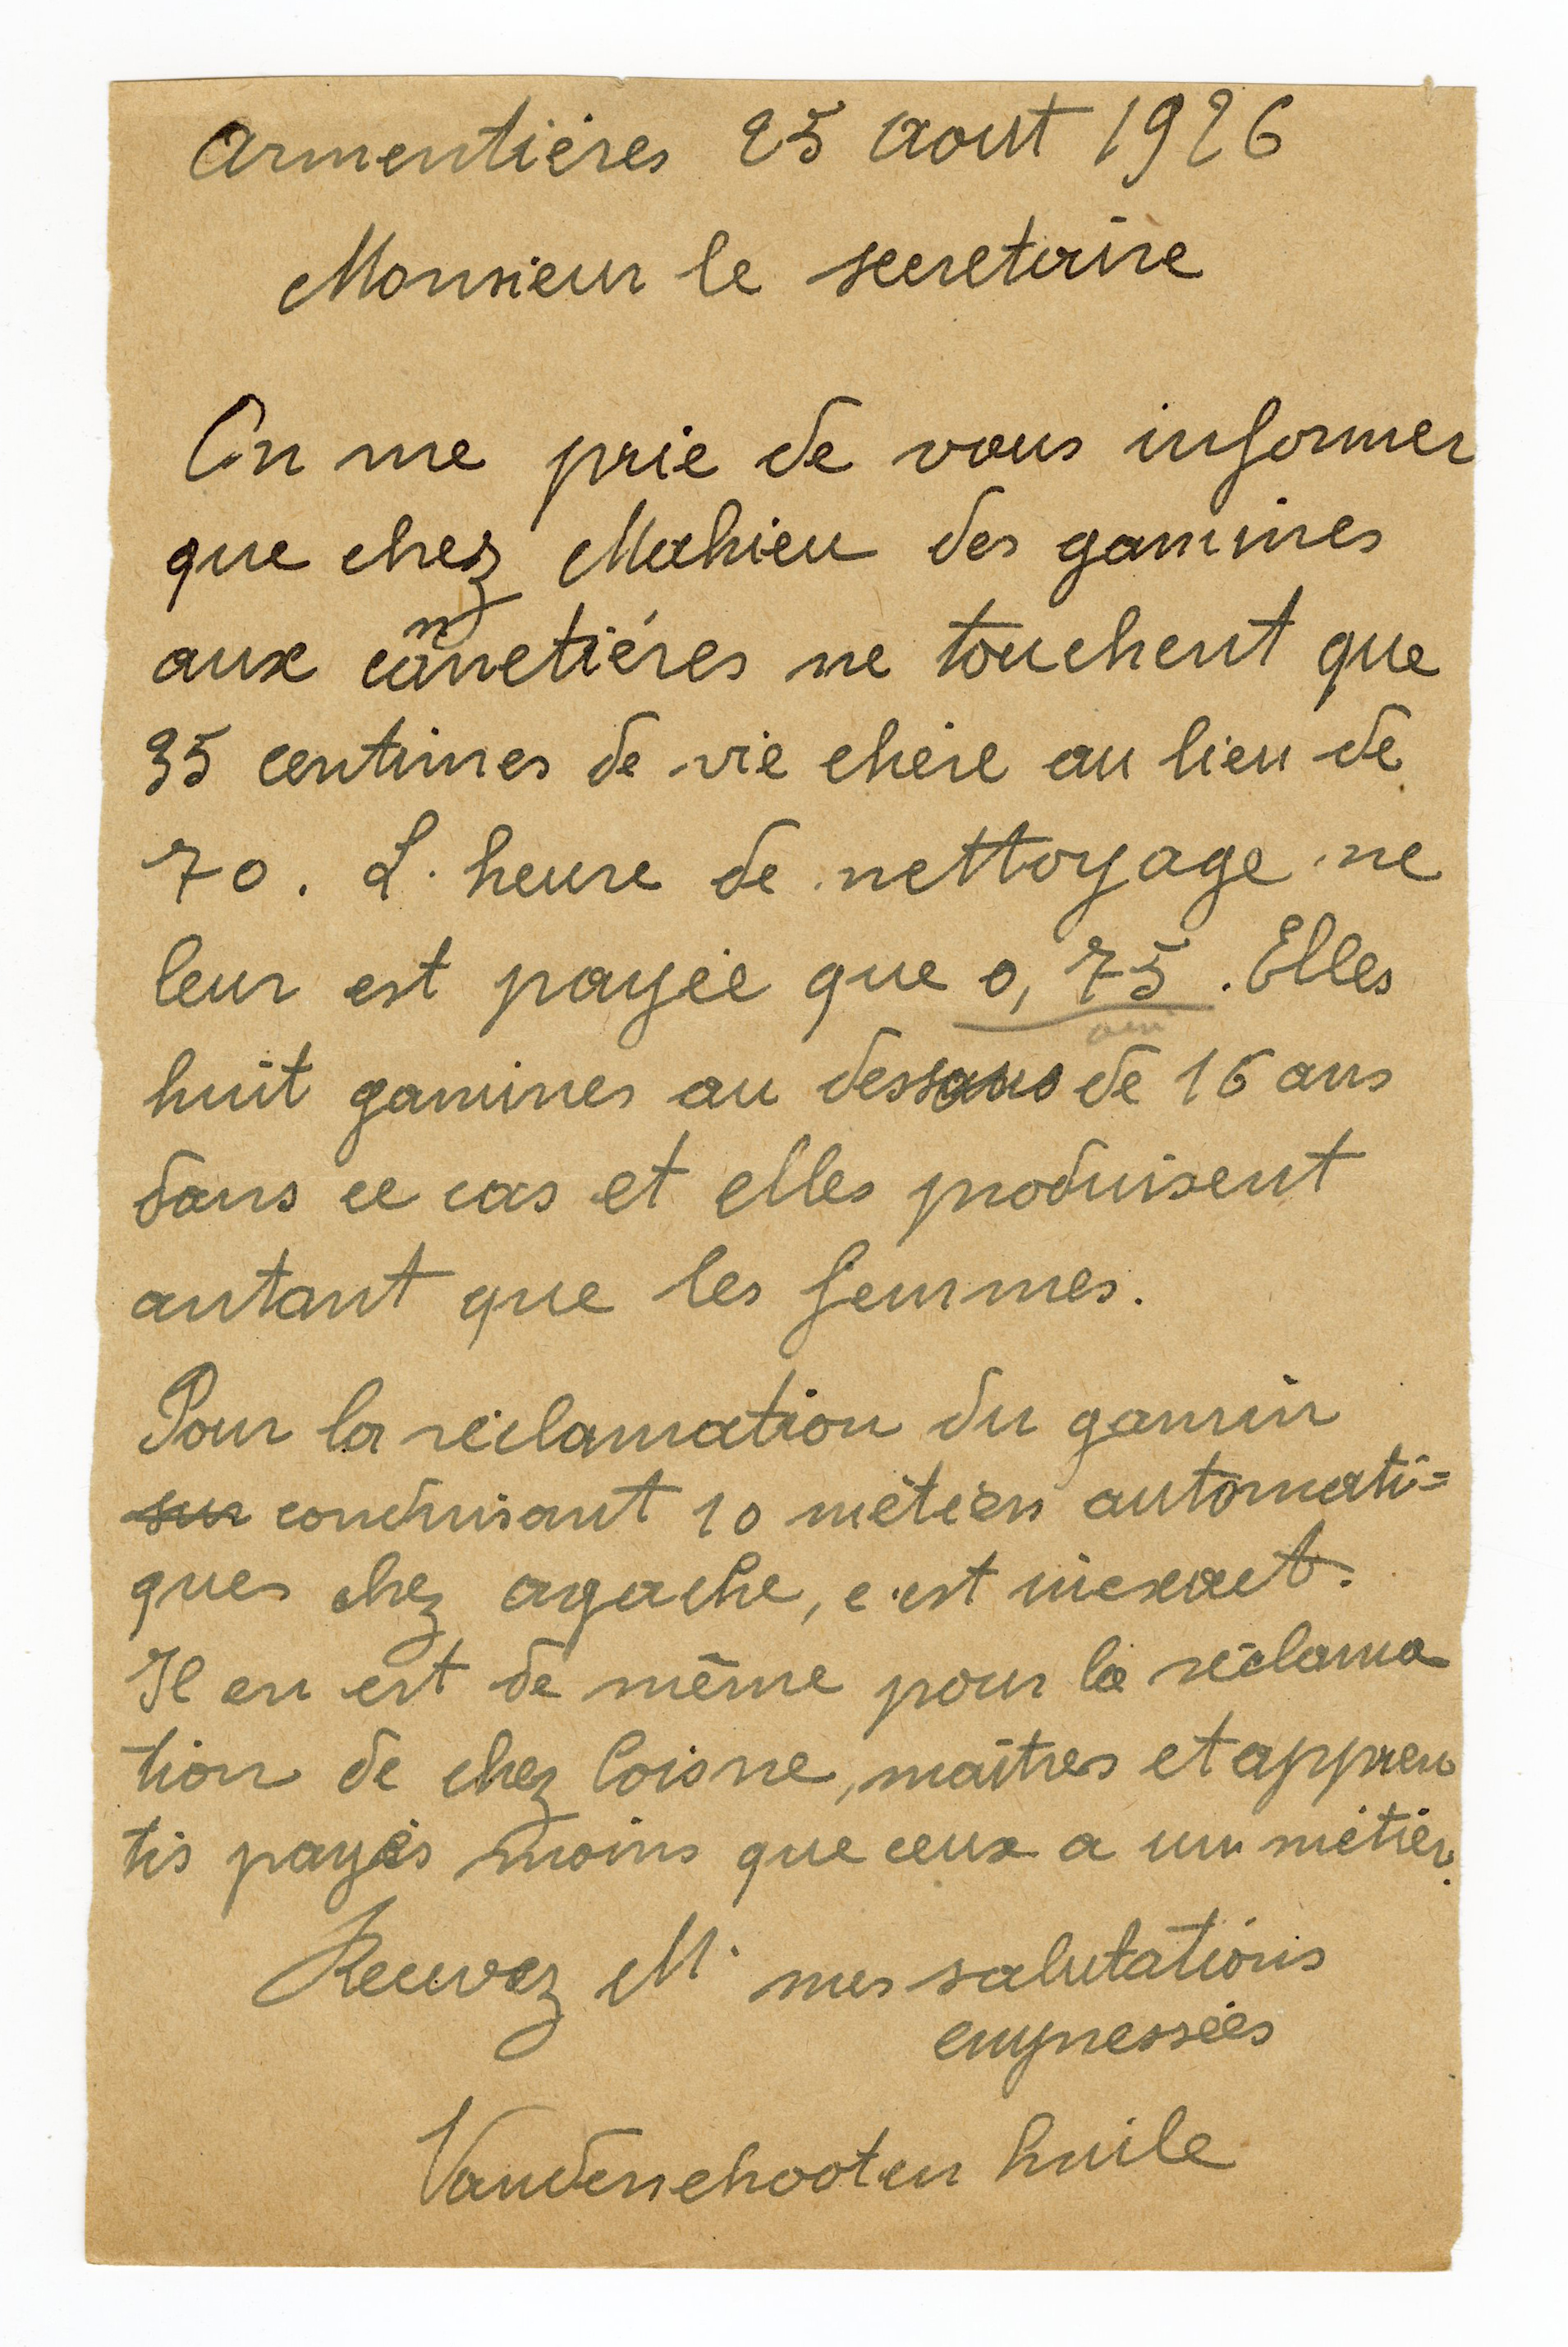 Armentières 25 Aout 1926
Monsieur le secretaire
On me prie de vous informer
que chez Mahieu des gamines
aux cannetiéres ne touchent que
35 centimes de vie chère au lieu de
70. L'heure de nettoyage ne
leur est payée que 0,75. Elles
huit gamines au dessous de 16 ans
dans ce cas et elles produisent
autant que les femmes.
Pour la réclamation du gamin
sur conduisant 10 métiers automati=
ques chez agache, c'est inexact.
Il en est de même pour la réclama
tion de chez Coisne, maîtres et appren
tis payés moins que ceux a un métier.
Recevez M. mes salutations
empressées
Vanderschooten